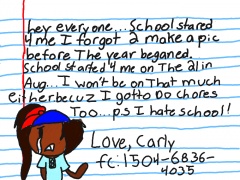 hey everyone...School stared
4 me I forgot 2 make a pic
before The year beganed.
School started 4 me on The 21 in
Aug... I won't be on That much
either becuz I gotto Do chores
Too...p.s I hate school!
Love, Carly
fc:1504-6836-
4035